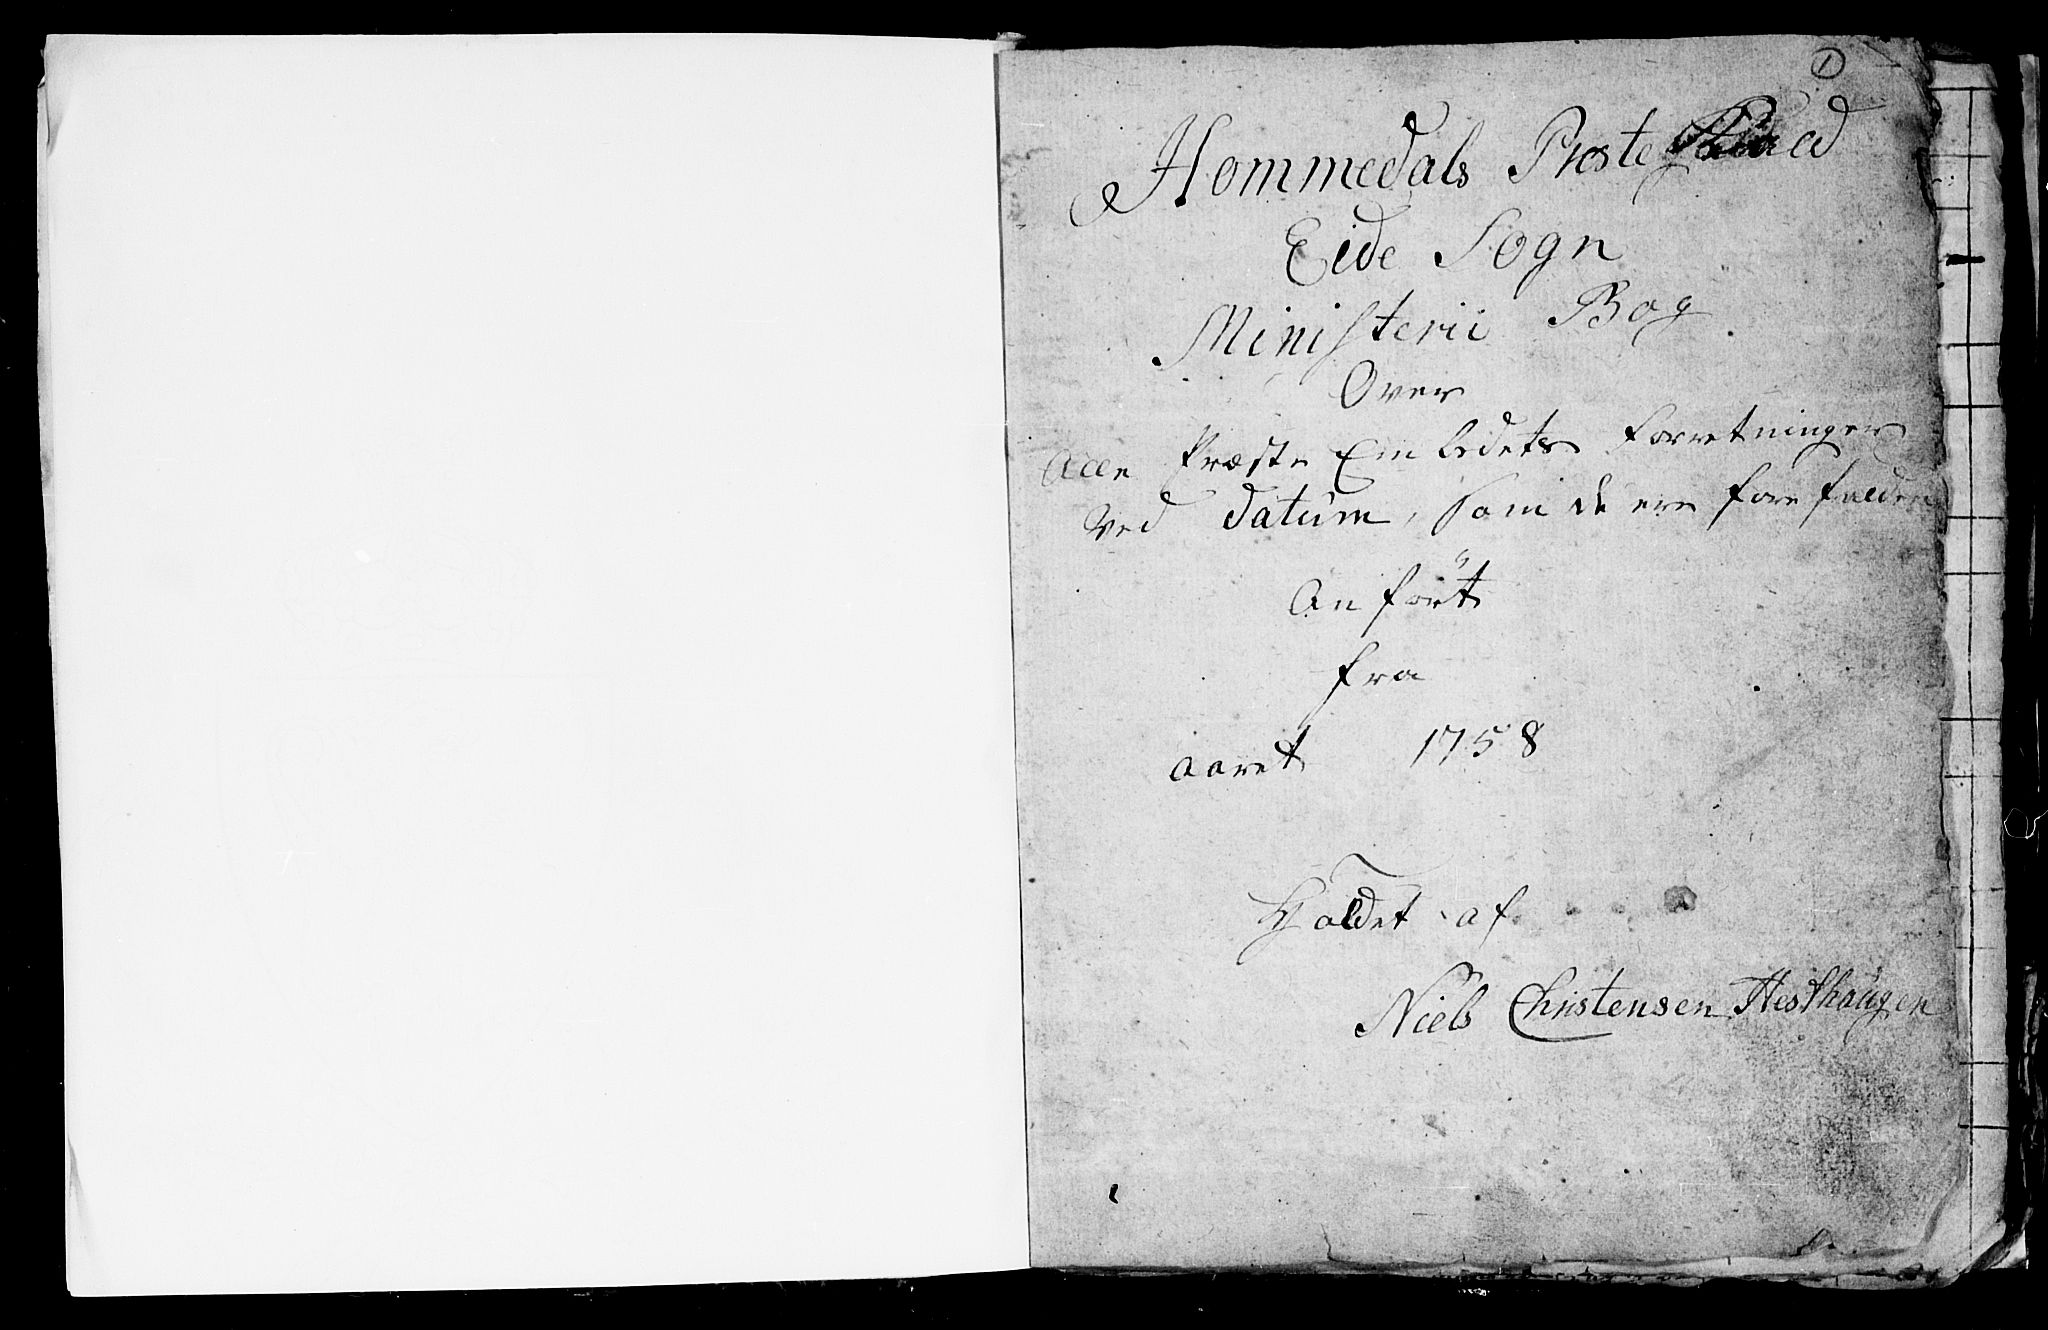 1
Hommedals Præste
Eide Sogn
Ministerii Bog
Over
Alle Præste Embedets Forretninger
Ved Datum, som de ere fore falden
Anført
fra
aaret 1758
Holdet af
Niels Christensen Hesthaugen